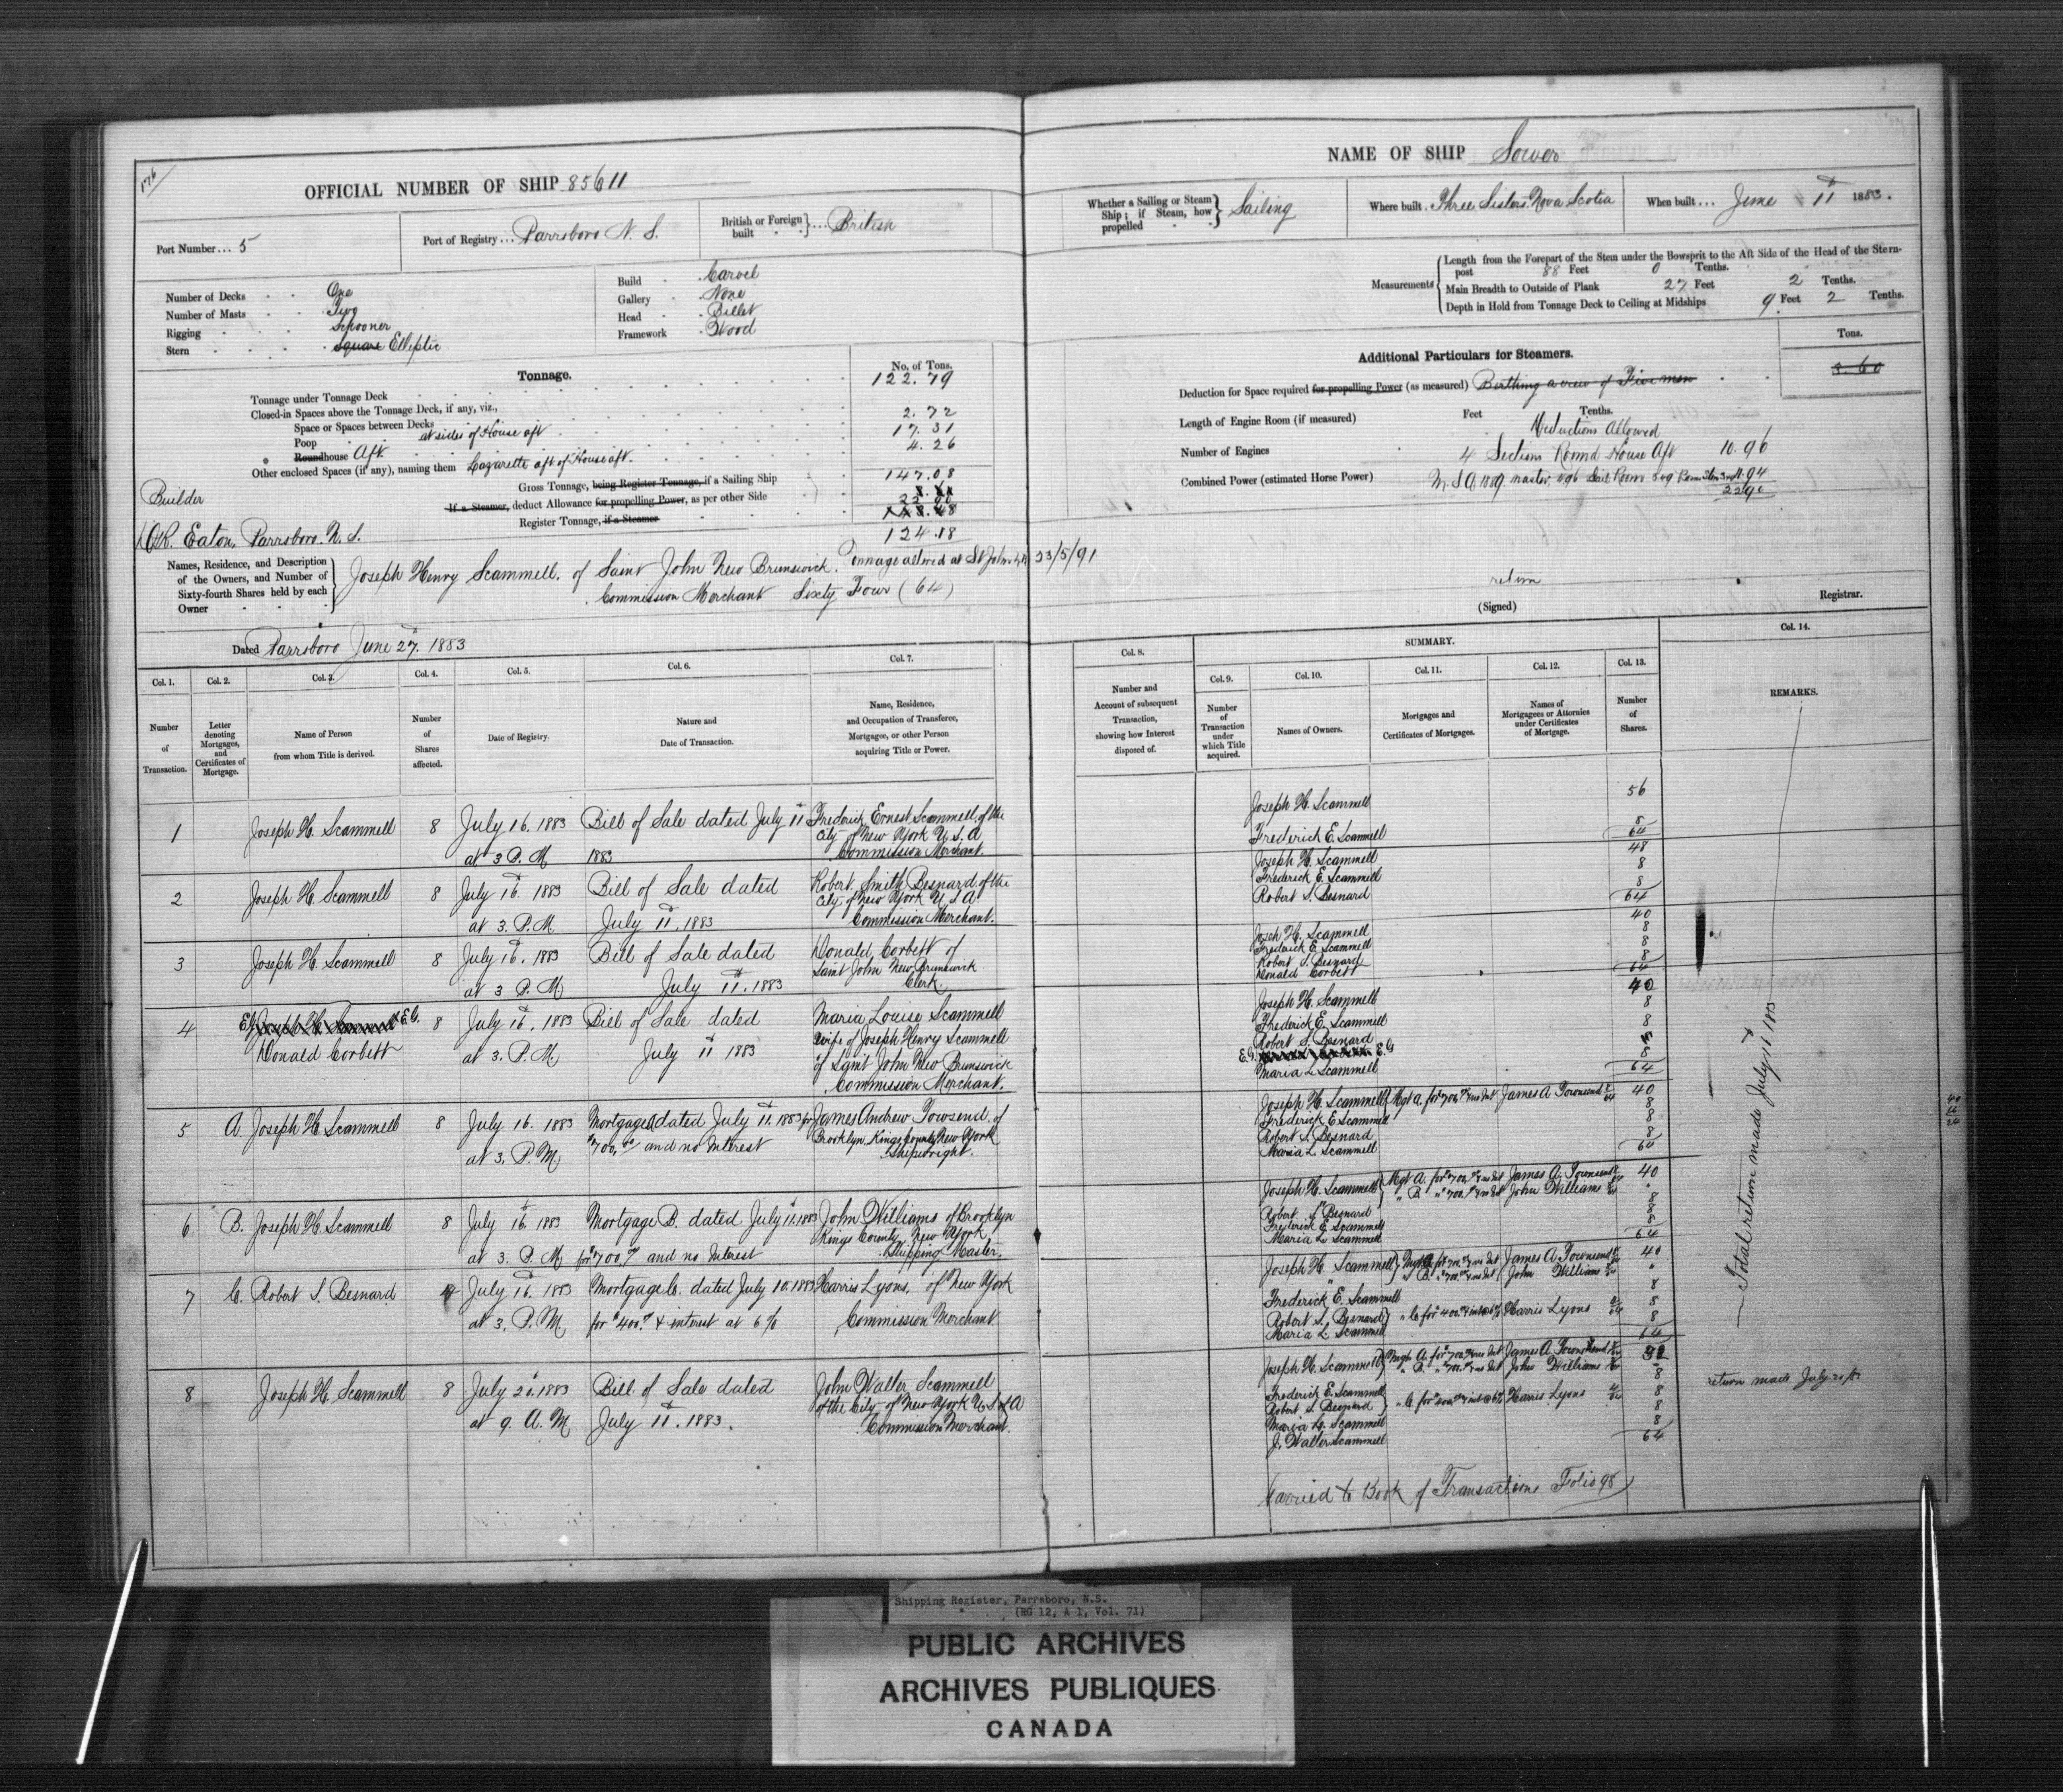 176
OFFICIAL NUMBER OF SHIP 85611
Port Number... 5
Port of Registry... Parrsboro N. S.
British or Foreign built } ... British
Number of Decks One
Number of Masts Two
Rigging Schooner
Stern Square Elliptic
Build Carvel
Gallery None
Head Billet
Framework Wood
Tonnage.
No. of Tons.
Tonnage under Tonnage Deck 122.79
Closed-in Spaces above the Tonnage Deck, if any, viz.,
Space or Spaces between Decks 2.72
Poop at sides of House aft 17.31
Roundhouse Aft 4.26
Other enclosed Spaces (if any), naming them Lazarette aft of House aft.
Gross Tonnage, being Register Tonnage, if a Sailing Ship 147.08
If a Steamer, deduct Allowance for propelling Power, as per other Side 22.90
Register Tonnage, if a Steamer
124.18
Builder
Eaton, Parrsboro. N. S.
Names, Residence, and Description of the Owners, and Number of Sixty-fourth Shares held by each Owner
Joseph Henry Scammell. of Saint John New Brunswick. Tonnage altered at St John 23/5/91
Commission Merchant Sixty Four (64)
Dated Parrsboro June 27. 1883
Col. 1. Col. 2. Col. 3. Col. 4. Col. 5. Col. 6. Col. 7.
Number of Transaction.
Letter denoting Mortgages, and Certificates of Mortgage.
Name of Person from whom Title is derived.
Number of Shares affected.
Date of Registry.
Nature and Date of Transaction.
Name, Residence, and Occupation of Transferee, Mortgagee, or other Person acquiring Title or Power.
1 Joseph H. Scammell 8 July 16. 1883 Bill of Sale dated July 11 Frederick Ernest Scammell. of the
City of New York U. S. A
at 3 P. M. 1883 Commission Merchant.
2 Joseph H. Scammell 8 July 16. 1883 Bill of Sale dated Robert Smith Besnard. of the
City of New York U S A
at 3. P. M. July 11. 1883 Commission Merchant.
3 Joseph H. Scammell 8 July 16. 1883 Bill of Sale dated Donald Corbett of
Saint John New Brunswick
at 3 P. M. July 11. 1883 Clerk.
4 E.G. Joseph H. Scammell E.G. 8 July 16. 1883 Bill of Sale dated Maria Louise Scammell
Donald Corbett at 3. P. M. July 11 1883 wife of Joseph Henry Scammell
of Saint John New Brunswick
Commission Merchant.
5 A. Joseph H. Scammell 8 July 16. 1883 Mortgage A dated July 11. 1883 for James Andrew Townsend. of
Brooklyn, Kings County New York
at 3. P. M. $700.00 and no Interest Shipwright.
6 B. Joseph H. Scammell 8 July 16. 1883 Mortgage B. dated July 11. 1883 John Williams of Brooklyn
Kings County New York
at 3. P. M. for $700. and no Interest Shipping Master.
7 C. Robert S. Besnard 4 July 16. 1883 Mortgage C. dated July 10. 1883 Harris Lyons, of New York
at 3. P. M. for $400. & interest at 6% Commission Merchant
8 Joseph H. Scammell 8 July 20. 1883 Bill of Sale dated John Walter Scammell
of the City of New York U. S. of A
at 9. A. M. July 11. 1883. Commission Merchant.
NAME OF SHIP Sower
Whether a Sailing or Steam Ship; if Steam, how propelled } Sailing
Where built. Three Sisters. Nova Scotia
When built... June 11 1883.
Measurements
Length from the Forepart of the Stem under the Bowsprit to the Aft Side of the Head of the Stern-post 88 Feet 0 Tenths.
Main Breadth to Outside of Plank 27 Feet 2 Tenths.
Depth in Hold from Tonnage Deck to Ceiling at Midships 9 Feet 2 Tenths.
Additional Particulars for Steamers.
Tons.
Deduction for Space required for propelling Power (as measured) Berthing a crew of Five men 3.60
Length of Engine Room (if measured) Feet Tenths.
Deductions Allowed
Number of Engines 4 Sections Round House Aft 10.96
Combined Power (estimated Horse Power)
M. S. A 1889. master, Sail Room 11.94
22.90
return
(Signed) Registrar.
Col. 8. SUMMARY. Col. 14.
Col. 9. Col. 10. Col. 11. Col. 12. Col. 13.
Number and Account of subsequent Transaction, showing how Interest disposed of.
Number of Transaction under which Title acquired.
Names of Owners.
Mortgages and Certificates of Mortgages.
Names of Mortgagees or Attornies under Certificates of Mortgage.
Number of Shares.
REMARKS.
Joseph H. Scammell 56
Frederick E. Scammell 8
64
Joseph H. Scammell 48
Frederick E. Scammell 8
Robert S. Besnard 8
64
Joseph H. Scammell 40
Frederick E. Scammell 8
Robert S. Besnard 8
Donald Corbett 8
64
Joseph H. Scammell 40
Frederick E. Scammell 8
Robert S. Besnard 8
E.G. E.G.
Maria L. Scammell 8
64
Joseph H. Scammell } Mgt A. for $700. & no Int James A Townsend 40
Frederick E. Scammell 8
Robert S. Besnard 8
Maria L. Scammell 8
64
Joseph H. Scammell } Mgt A. for $700. & no Int James A. Townsend 40
" B. " $700. & no Int John Williams "
Robert S. Besnard 8
Frederick E. Scammell 8
Maria L. Scammell 8
64
Joseph H. Scammell } Mgt A for $700. & no Int James A Townsend 40
" B. " $700. & no Int John Williams "
Frederick E. Scammell 8
Robert S. Besnard } " C for $400. & int @ 6% Harris Lyons 8
Maria L. Scammell 8
64
Joseph H. Scammell } Mtgh A. for $700. & no Int James A. Townsend 32
" B. " $700. & no Int John Williams
Frederick E. Scammell 8
Robert S. Besnard " C for $400. & int @ 6% Harris Lyons 8
Maria L. Scammell 8
J. Walter Scammell 8
64
Carried to Book of Transactions Folio 98
— Total return made July 16 1883
return made July 20/83
Shipping Register, Parrsboro, N.S.
(RG 12, A 1, Vol. 71)
PUBLIC ARCHIVES
ARCHIVES PUBLIQUES
CANADA